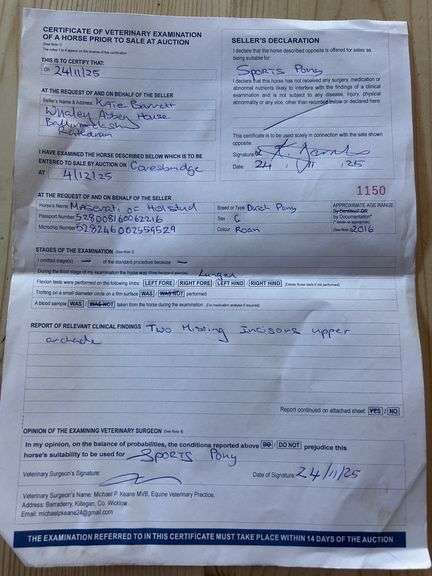 CERTIFICATE OF VETERINARY EXAMINATION
OF A HORSE PRIOR TO SALE AT AUCTION
(See Note 1)
THIS IS TO CERTIFY THAT:
ON 24/11/25
AT THE REQUEST OF AND ON BEHALF OF THE SELLER
Seller's Name & Address: Katie
House
I HAVE EXAMINED THE HORSE DESCRIBED BELOW WHICH IS TO BE
ENTERED TO SALE BY AUCTION ON Cavanbridge
AT 4/12/25
SELLER'S DECLARATION
I declare that the horse described opposite is offered for sales as
being suitable for:
Sports Pony
I declare that this horse has not received any surgery, medication or
abnormal nutrients likely to interfere with the findings of a clinical
examination and is not subject to any disease, injury, physical
abnormality or any vice, other than recorded below or declared here
This certificate to be used solely in connection with the sale shown
opposite.
Signature:
Date: 24 11 25
1150
AT THE REQUEST OF AND ON BEHALF OF THE SELLER
Horse's Name: Maserati of Holstud
Breed or Type: Dutch Pony
APPROXIMATE AGE RANGE
By Dentition* OR
by Documentation*
Passport Number: 528008160062216
Sex: G
Microchip Number: 528246002559529
Colour: Roan
(See Note 2) 2016
STAGES OF THE EXAMINATION (See Note 3)
I omitted stage(s) — of the standard procedure because —
During the third stage of my examination the horse was Lunged
Flexion tests were performed on the following limbs: LEFT FORE / RIGHT FORE / LEFT HIND / RIGHT HIND
Trotting on a small diameter circle on a firm surface WAS / WAS NOT performed
A blood sample WAS / WAS NOT taken from the horse during the examination. (For medication analysis if required)
REPORT OF RELEVANT CLINICAL FINDINGS Two Missing Incisors upper
arcade
Report continued on attached sheet: YES / NO
OPINION OF THE EXAMINING VETERINARY SURGEON (See Note 5)
In my opinion, on the balance of probabilities, the conditions reported above DO / DO NOT prejudice this
horse's suitability to be used for Sports Pony
Veterinary Surgeon's Signature:
Date of Signature: 24/11/25
Veterinary Surgeon's Name: Michael P Keane MVB, Equine Veterinary Practice.
Address: Barraderry, Kiltegan, Co. Wicklow
Email: michaelpkeane24@gmail.com
THE EXAMINATION REFERRED TO IN THIS CERTIFICATE MUST TAKE PLACE WITHIN 14 DAYS OF THE AUCTION